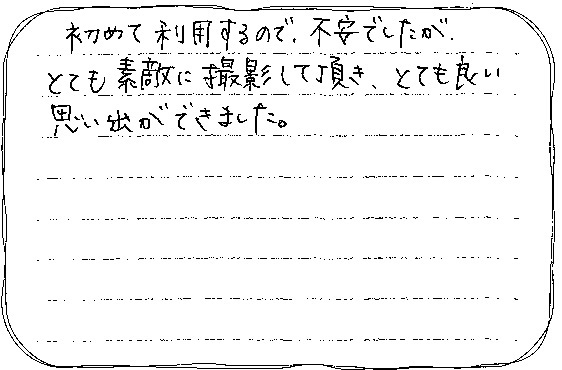 初めて利用するので、不安でしたが、
とても素敵に撮影して頂き、とても良い
思い出ができました。